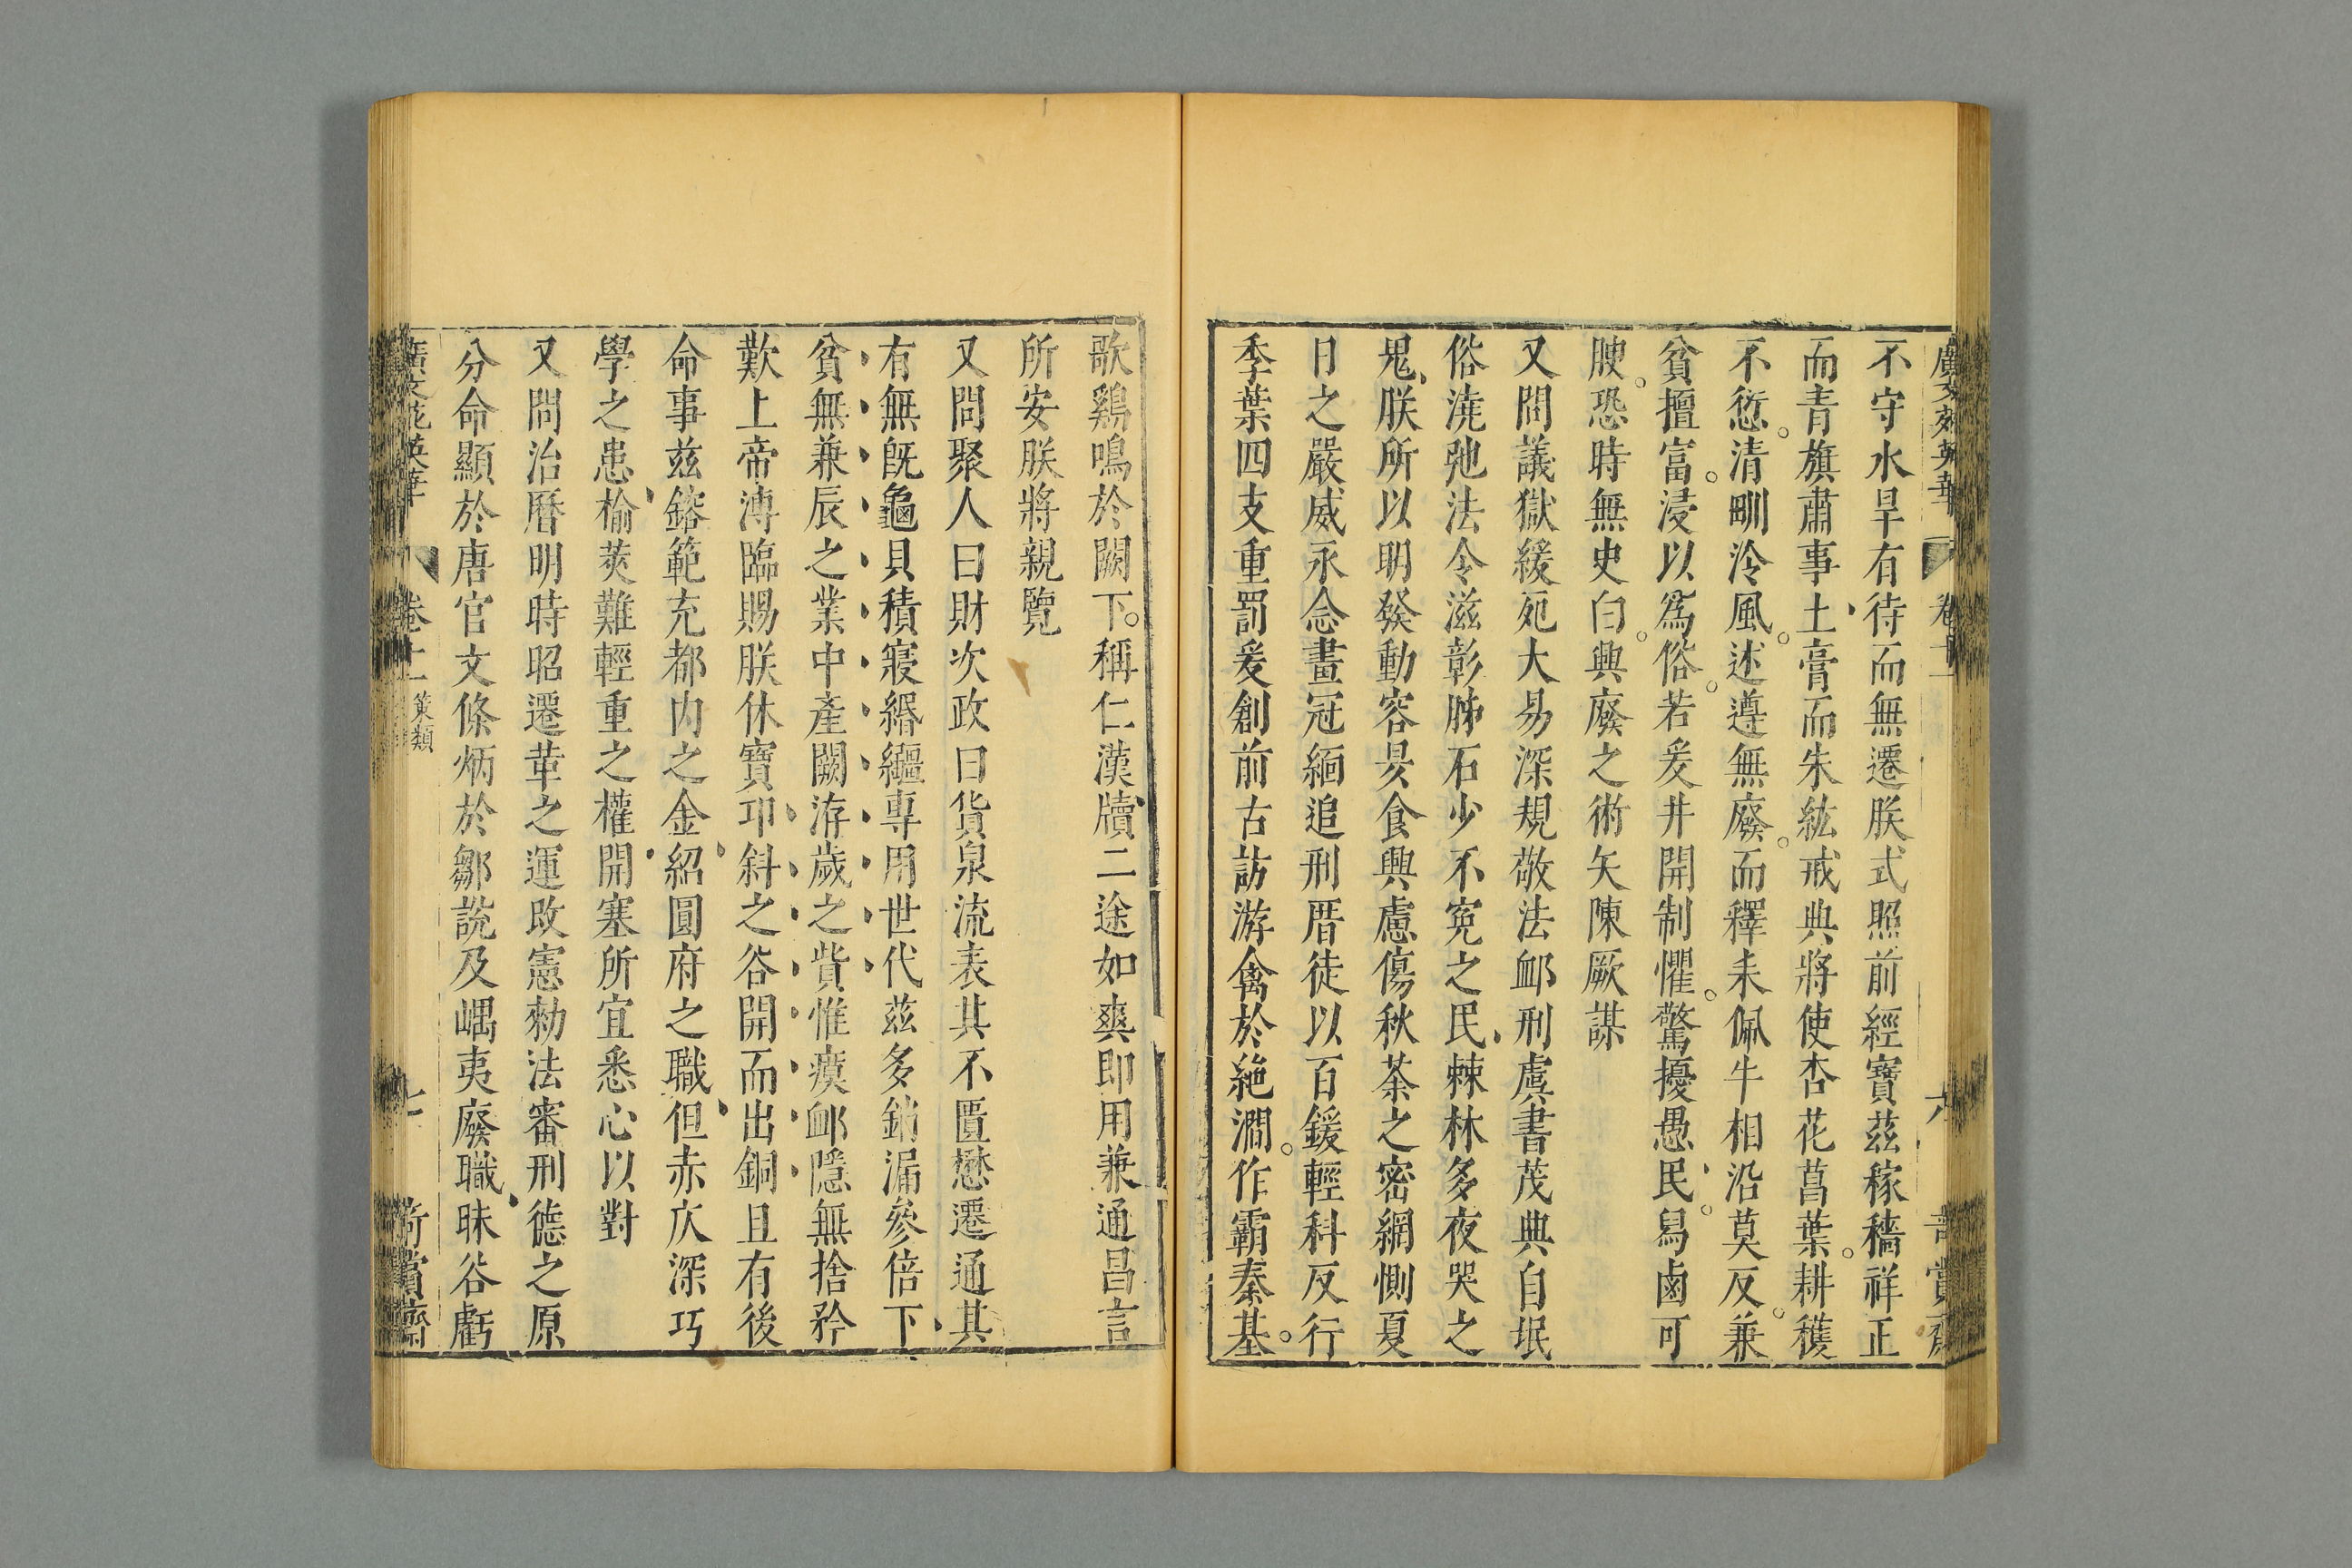 廣文苑英華 卷十一 六 奇賞齋
不守水旱有待而無遷朕式照前經寶茲稼穡祥正
而青旗肅事土膏而朱紘戒典將使杏花菖葉耕穫
不愆清甽泠風述遵無廢而釋耒佩牛相沿莫反兼
貧擅富浸以為俗若爰井開制懼驚擾愚民舄鹵可
腴恐時無史白興廢之術矢陳厥謀
又問議獄緩死大易深規敬法卹刑虞書茂典自氓
俗澆弛法令滋彰肺石少不寃之民棘林多夜哭之
鬼朕所以明發動容昃食興慮傷秋荼之密網惻夏
日之嚴威永念畫冠緬追刑厝徒以百鍰輕科反行
季葉四支重罰爰創前古訪游禽於絶澗作霸秦基
歌鷄鳴於闕下稱仁漢牘二途如爽即用兼通昌言
所安朕將親覽
又問聚人曰財次政曰貨泉流表其不匱懋遷通其
有無旣龜貝積寢緡繦專用世代茲多銷漏參倍下
貧無兼辰之業中產闕洊歲之貲惟瘼卹隱無捨矜
歎上帝溥臨賜朕休寶卭斜之谷開而出銅且有後
命事茲鎔範充都內之金紹圓府之職但赤仄深巧
學之患榆莢難輕重之權開塞所宜悉心以對
又問治曆明時昭遷革之運改憲勅法審刑德之原
分命顯於唐官文條炳於鄒說及嵎夷廢職昧谷虧
廣文苑英華 卷十一 策類 七 奇賞齋